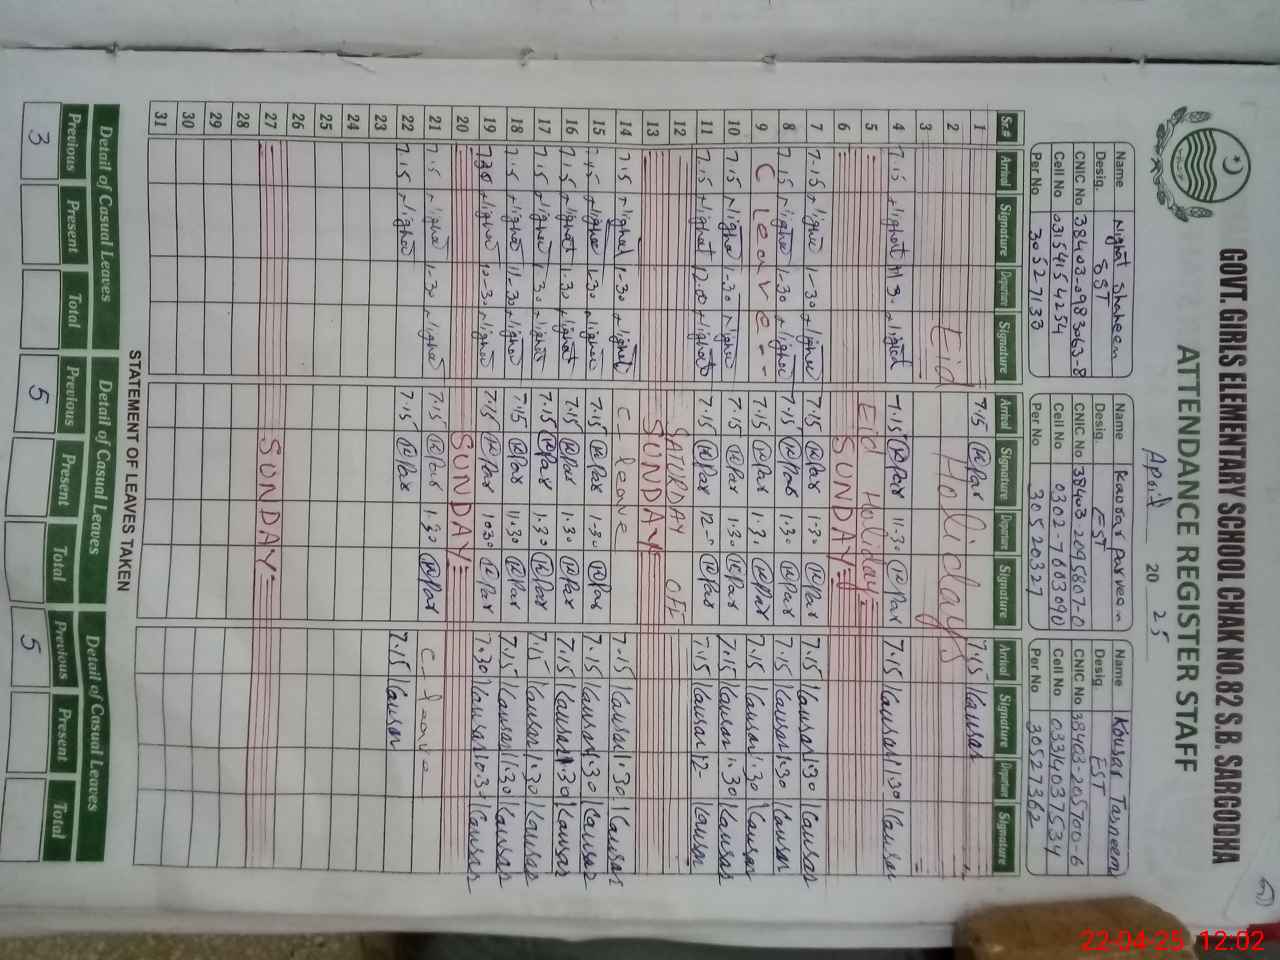 GOVT. GIRLS ELEMENTARY SCHOOL CHAK NO.82 S.B. SARGODHA
ATTENDANCE REGISTER STAFF
April 20 25
Name Nighat Shaheen
Desig. SST
CNIC No 38403-0983063-8
Cell No 03154154254
Per No 30527133
Name Kaosar parveen
Desig. EST
CNIC No 38403-2095807-0
Cell No 0302-7603090
Per No 30520327
Name Kousar Tasneem
Desig. EST
CNIC No 38403-205700-6
Cell No 03314037534
Per No 30527362
Sr.# Arrival Signature Departure Signature Arrival Signature Departure Signature Arrival Signature Departure Signature
1 7.15 7.15 Kausar
2 Eid Holidays
3
4 7.15 Nighat 11.30 Nighat 7.15 11.30 7.15 Kausar 11.30 Kausar
5 Eid Holiday
6 SUNDAY
7 7.15 Nighat 1-30 Nighat 7.15 1.30 7.15 Kausar 1.30 Kausar
8 7.15 Nighat 1-30 Nighat 7.15 1.30 7.15 Kausar 1.30 Kausar
9 C Leave 7.15 1.30 7.15 Kausar 1.30 Kausar
10 7.15 Nighat 1-30 Nighat 7.15 1.30 7.15 Kausar 1.30 Kausar
11 7.15 Nighat 12.00 Nighat 7.15 12- 7.15 Kausar 12- Kausar
12 SATURDAY OFF
13 SUNDAY
14 7.15 Nighat 1-30 Nighat C- leave 7.15 Kausar 1.30 Kausar
15 7.15 Nighat 1-30 Nighat 7.15 1-30 7.15 Kausar 1.30 Kausar
16 7.15 Nighat 1.30 Nighat 7.15 1.30 7.15 Kausar 1.30 Kausar
17 7.15 Nighat 1.30 Nighat 7.15 1.30 7.15 Kausar 1.30 Kausar
18 7.15 Nighat 11.30 Nighat 7.15 11.30 7.15 Kausar 11.30 Kausar
19 7.30 Nighat 10-30 Nighat 7.15 10.30 7.30 Kausar 10.30 Kausar
20 SUNDAY
21 7.15 Nighat 1-30 Nighat 7.15 1.30 C- leave
22 7.15 Nighat 7.15 7.15 Kausar
23
24
25
26
27 SUNDAY
28
29
30
31
STATEMENT OF LEAVES TAKEN
Detail of Casual Leaves Detail of Casual Leaves Detail of Casual Leaves
Previous Present Total Previous Present Total Previous Present Total
3 5 5
22-04-25 12:02